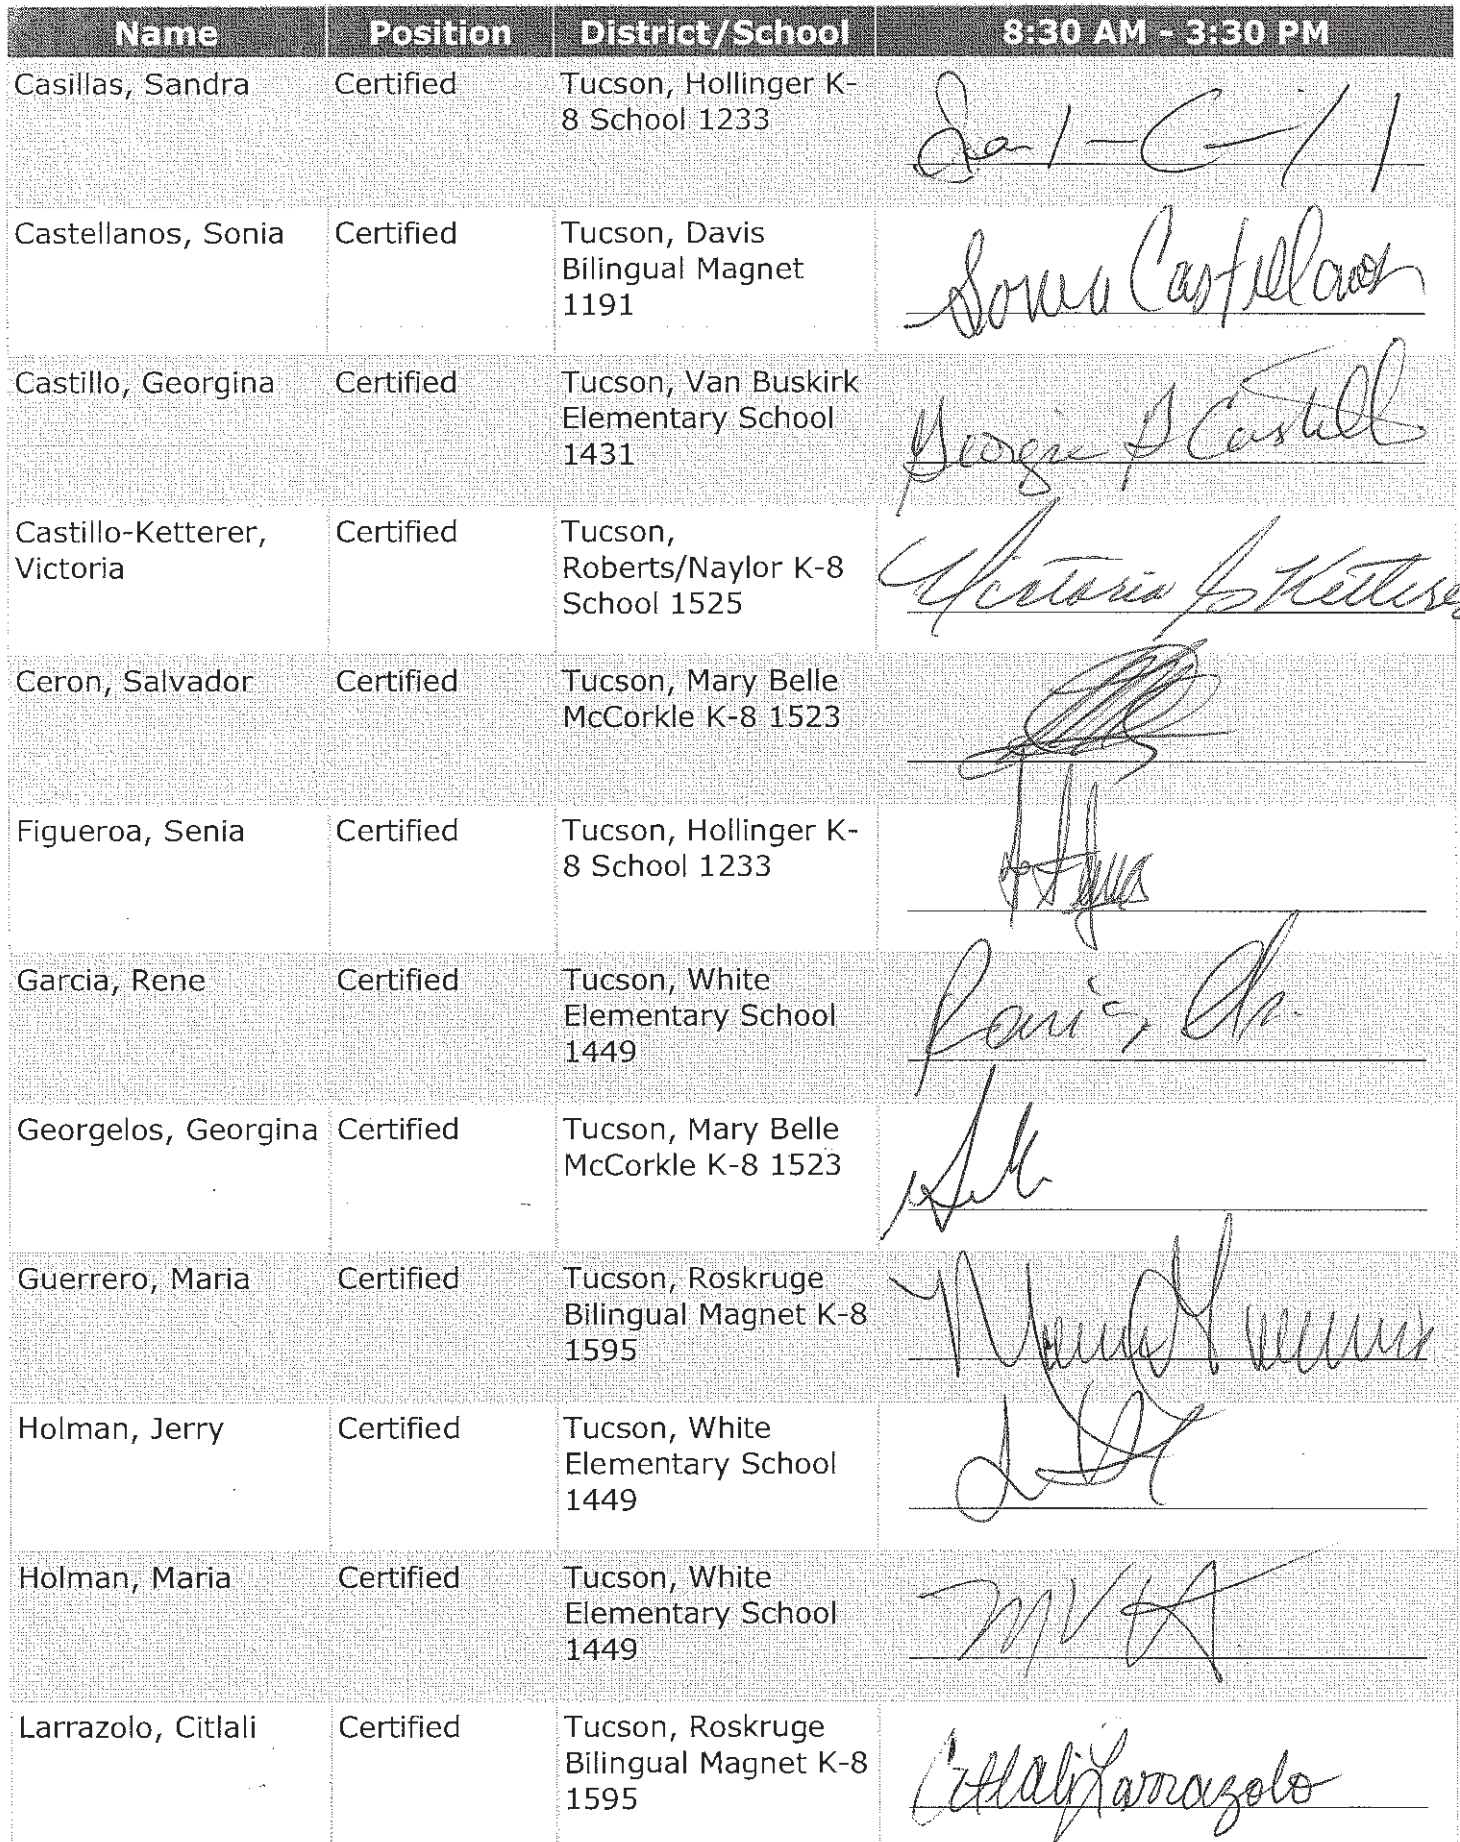 Name Position District/School 8:30 AM - 3:30 PM
Casillas, Sandra Certified Tucson, Hollinger K-
8 School 1233
Castellanos, Sonia Certified Tucson, Davis
Bilingual Magnet
1191
Sonia Castellanos
Castillo, Georgina Certified Tucson, Van Buskirk
Elementary School
1431
Castillo-Ketterer, Certified Tucson,
Victoria Roberts/Naylor K-8
School 1525
Victoria Ketterer
Ceron, Salvador Certified Tucson, Mary Belle
McCorkle K-8 1523
Figueroa, Senia Certified Tucson, Hollinger K-
8 School 1233
Garcia, Rene Certified Tucson, White
Elementary School
1449
Georgelos, Georgina Certified Tucson, Mary Belle
McCorkle K-8 1523
Guerrero, Maria Certified Tucson, Roskruge
Bilingual Magnet K-8
1595
Maria Guerrero
Holman, Jerry Certified Tucson, White
Elementary School
1449
Holman, Maria Certified Tucson, White
Elementary School
1449
Larrazolo, Citlali Certified Tucson, Roskruge
Bilingual Magnet K-8
1595
Citlali Larrazolo